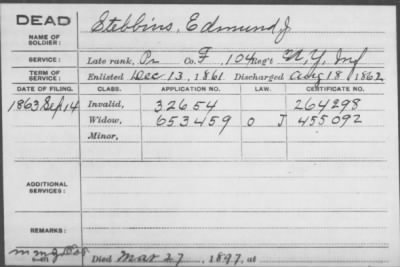 DEAD
Stebbins, Edmund J
NAME OF SOLDIER:
SERVICE: Late rank, Pr Co. F, 104 Reg't N.Y. Inf
TERM OF SERVICE: Enlisted Dec 13, 1861 Discharged Aug 18, 1862
DATE OF FILING. CLASS. APPLICATION NO. LAW. CERTIFICATE NO.
1863 Sep 14 Invalid, 32654 264298
Widow, 653459 O J 455092
Minor,
ADDITIONAL SERVICES:
REMARKS:
Died Mar 27, 1897, at